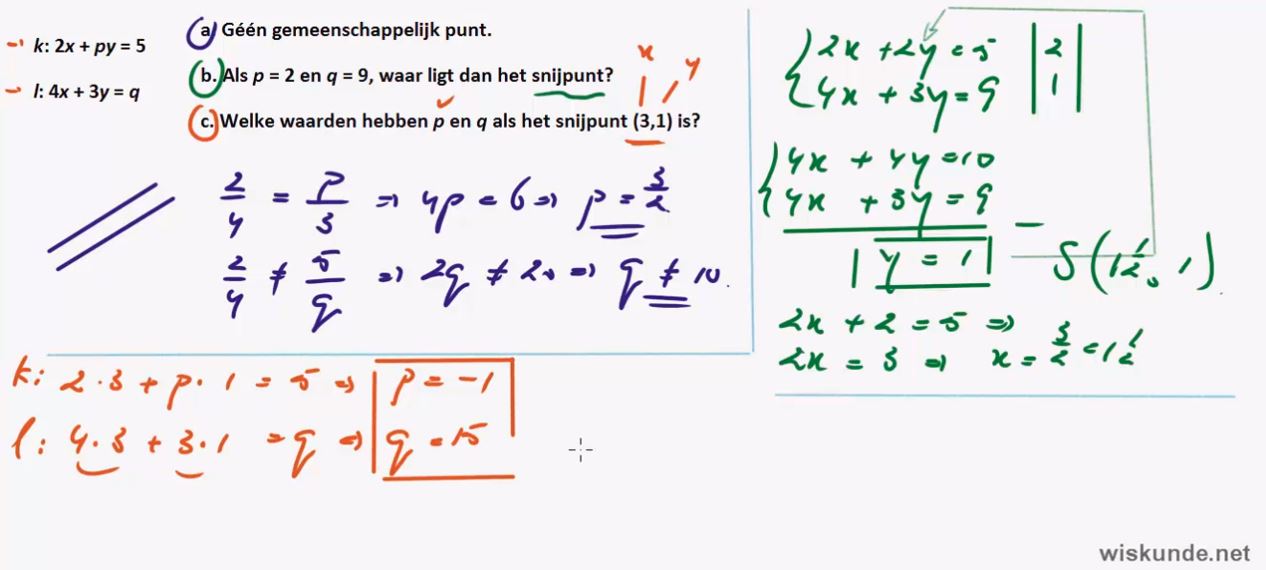 k: 2x + py = 5
l: 4x + 3y = q
a) Géén gemeenschappelijk punt.
b. Als p = 2 en q = 9, waar ligt dan het snijpunt?
c. Welke waarden hebben p en q als het snijpunt (3,1) is?
x y
2/4 = p/3 => 4p = 6 => p = 3/2
2/4 ≠ 5/q => 2q ≠ 20 => q ≠ 10.
k: 2·3 + p·1 = 5 => p = -1
l: 4·3 + 3·1 = q => q = 15
2x + 2y = 5 | 2 |
4x + 3y = 9 | 1 |
4x + 4y = 10
4x + 3y = 9
y = 1
S(1½, 1)
2x + 2 = 5 =>
2x = 3 => x = 3/2 = 1½
wiskunde.net